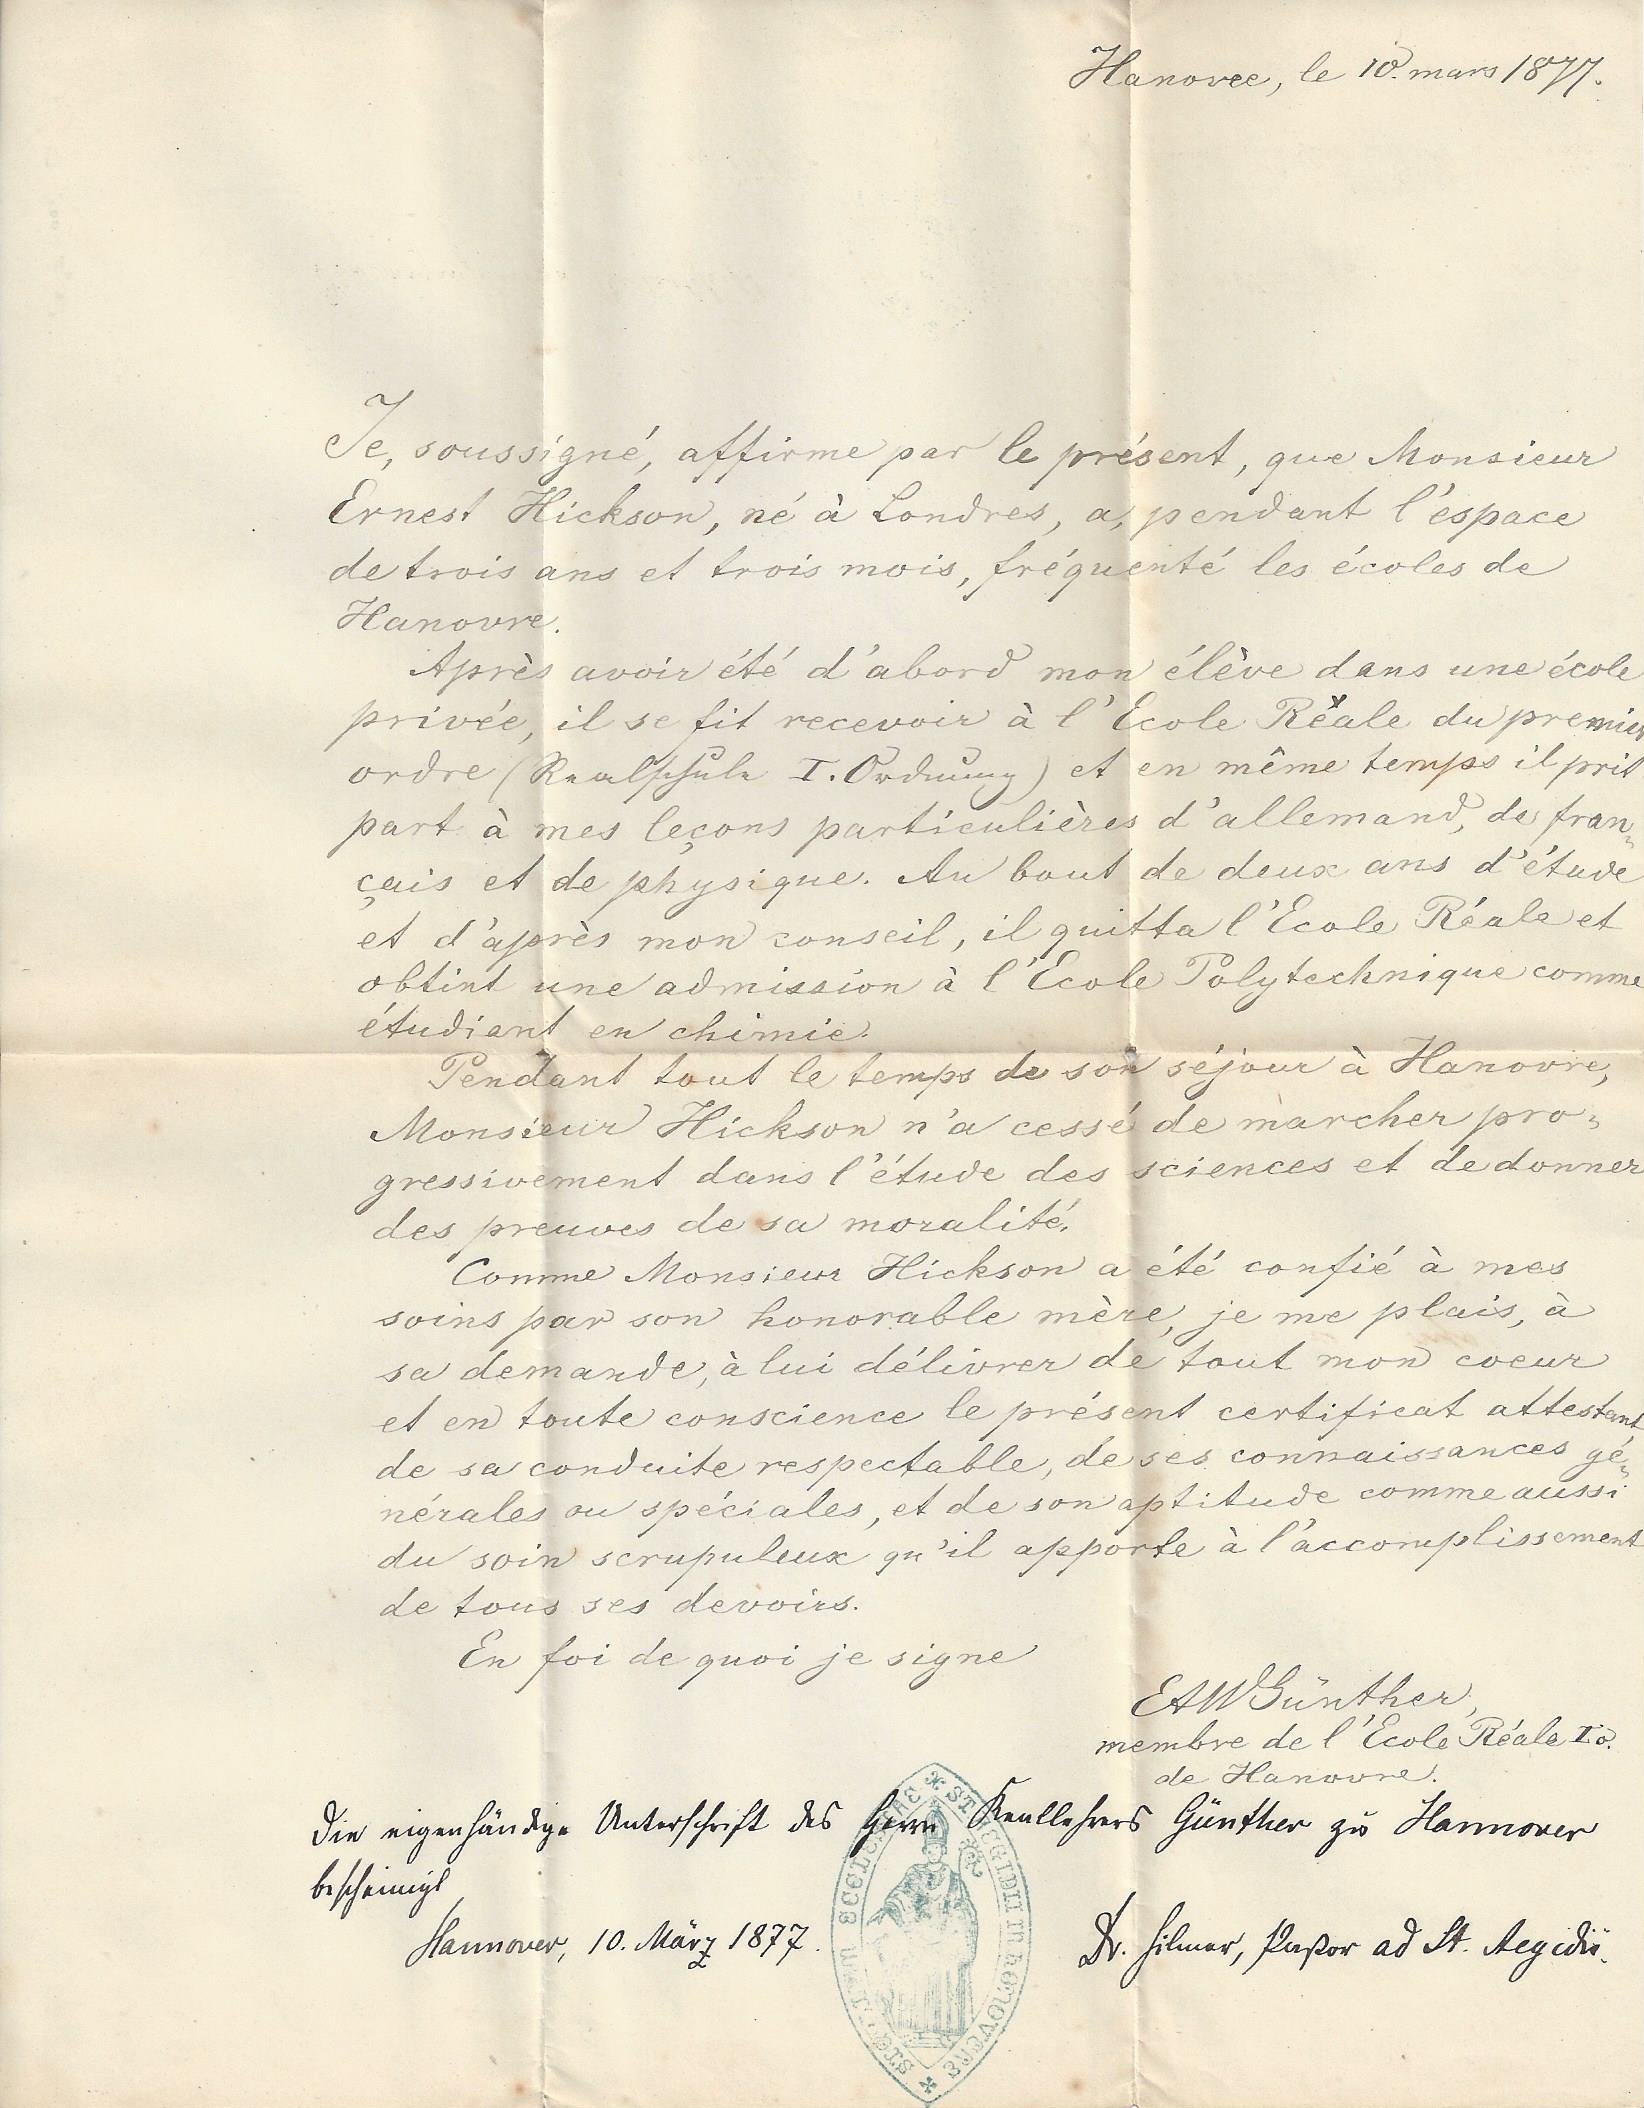 Hanovre, le 10. mars 1877.
Je, soussigné, affirme par le présent, que Monsieur
Ernest Hickson, né à Londres, a, pendant l'éspace
de trois ans et trois mois, fréquenté les écoles de
Hanovre.
Après avoir été d'abord mon élève dans une école
privée, il se fit recevoir à l'Ecole Réale du premier
ordre (Realschule I. Ordnung) et en même temps il prit
part à mes leçons particulières d'allemand, de fran-
çais et de physique. Au bout de deux ans d'étude
et d'après mon conseil, il quitta l'Ecole Réale et
obtint une admission à l'Ecole Polytechnique comme
étudiant en chimie.
Pendant tout le temps de son séjour à Hanovre,
Monsieur Hickson n'a cessé de marcher pro-
gressivement dans l'étude des sciences et de donner
des preuves de sa moralité.
Comme Monsieur Hickson a été confié à mes
soins par son honorable mère, je me plais, à
sa demande, à lui délivrer de tout mon coeur
et en toute conscience le présent certificat attestant
de sa conduite respectable, de ses connaissances gé-
nérales ou spéciales, et de son aptitude comme aussi
du soin scrupuleux qu'il apporte à l'accomplissement
de tous ses devoirs.
En foi de quoi je signe
EAWGünther,
membre de l'Ecole Réale I o.
de Hanovre.
Die eigenhändige Unterschrift des Herrn Reallehrers Günther zu Hannover
bescheinigt
Hannover, 10. März 1877.
Dr. Hilmer, Pastor ad St. Aegidii.
ECCLESIAE ST. AEGIDII IN HONOVERE